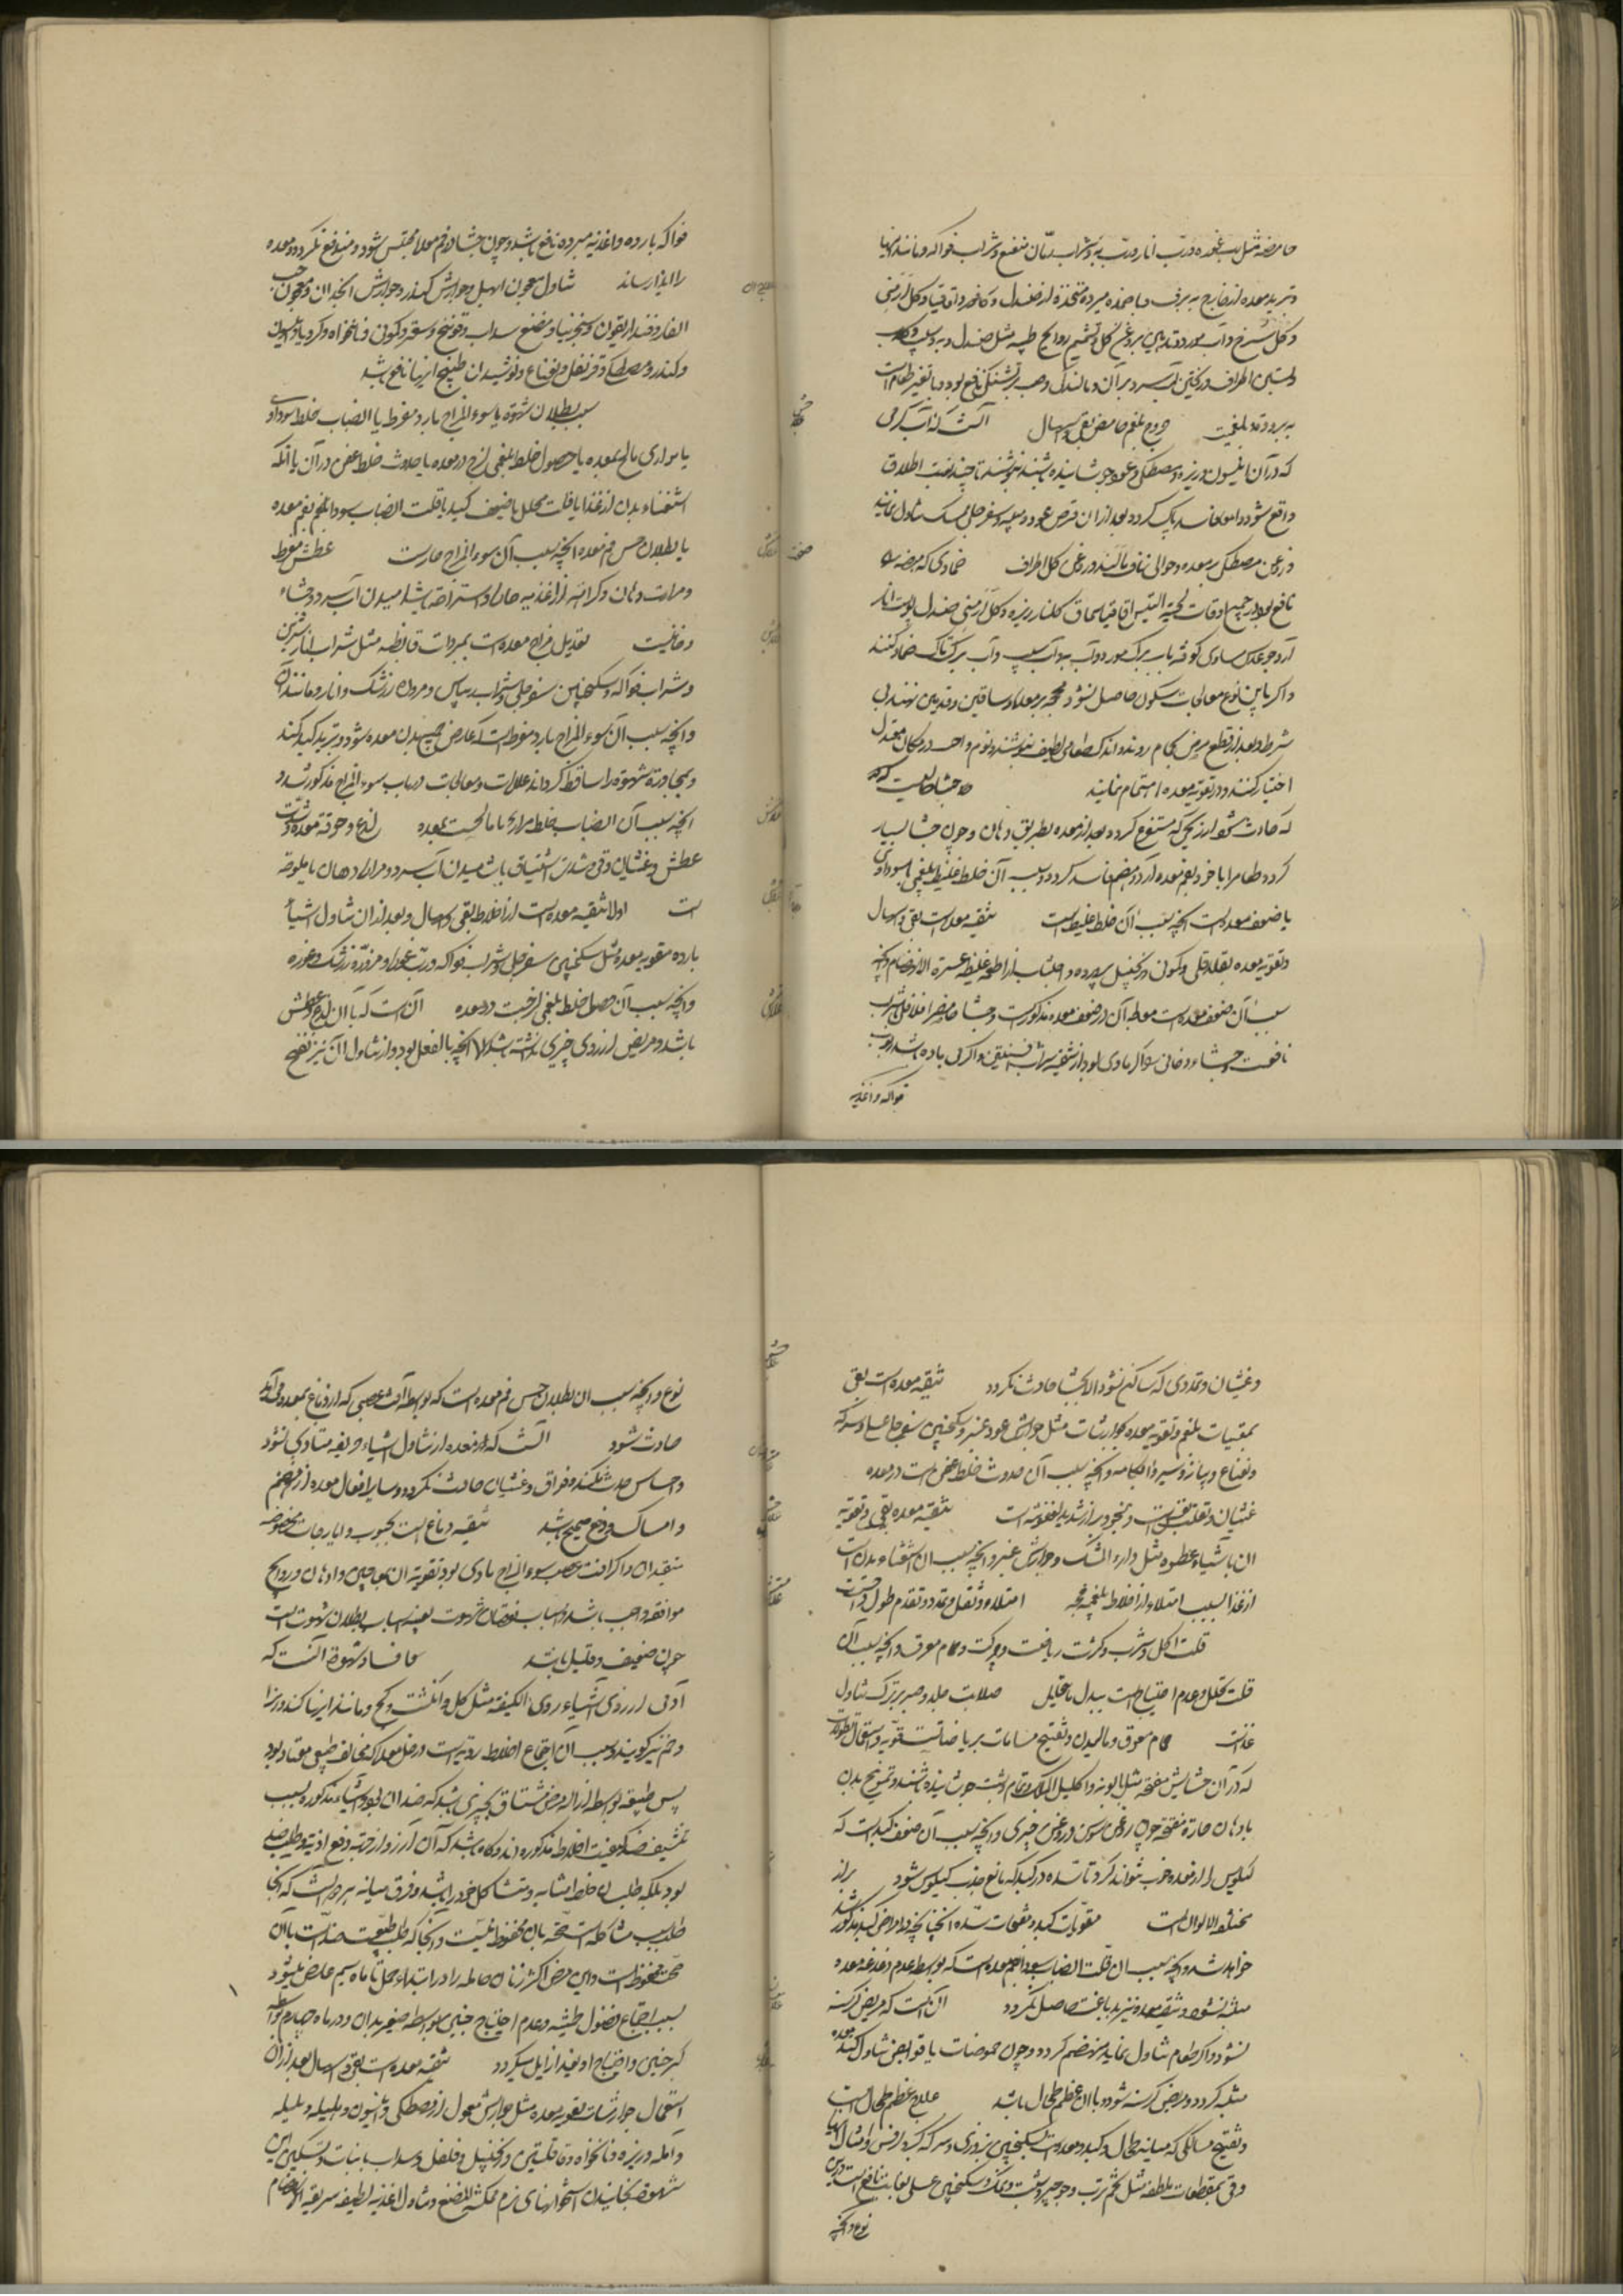 حامضه مثل رب غوره و رب انار و رب به و شراب رمان منعنع و شراب فواکه و مانند اینها
و تبرید معده از خارج به برف و باضمده مبرده متخذه از صندل و کافور و اقاقیا و کل ارمنی
و کل سرخ و آب مورد و روغن کل و تشمیم روایح طیبه مثل صندل و به و سیب و کلاب
و بستن اطراف و ریختن آب سرد بر آن و مالیدن و صبر بر تشنکی نافع بود و با تغیر طعام است
به برودت بلغمیت خروج بلغم حامض بقی و اسهال آنست که آب کرمی
که در آن انیسون و زیره و مصطکی و عود جوشانیده باشند بنوشند تا چند نوبت اطلاق
واقع شود و امعا فاسد پاک کردد بعد از آن قرص عود و میبه و سفرجلی ممسک تناول نمایند
و روغن مصطکی بر معده و حوالی ناف مالند و روغن کل اطراف ضمادی که هیضه را
نافع بود در جمیع اوقات لحیة التیس اقاقیا سماق کلنار زیره و کل ارمنی صندل پوست انار
آرد جو عدس مساوی کوفته بآب برک مورد و آب به و آب سیب و آب برک تاک ضماد کنند
و اکر باین نوع معالجات سکون حاصل نشود محجمه بر معده و ساقین و قدمین نهند بی
شرط و بعد از قطع مرض بحمام روند و اندک طعامی لطیف بنوشند و نوم و راحت در مکان معتدل
اختیار کنند و در تقویه معده اهتمام نمایند جشا حالتیست که
که حادث شود از ریحی که مستنفع کردد بعد از معده بطریق دهان و چون جشا بسیار
کردد طعام را با خود بفم معده آرد و هضم فاسد کردد و سبب آن خلط غلیظ بلغمی یا سوداوی
یا ضعف معده است آنچه سبب آن خلط غلیظ است تنقیه معده است بقی و اسهال
و تقویه معده بقلاقلی و کمونی و زنجبیل پرورده و اجتناب از اطعمه غلیظه عسرة الانهضام و آنچه
سبب آن ضعف معده است معالجه آن در ضعف معده مذکور است و جشا حامض را فلافلی و شراب
نافعست و جشاء دخانی سوء اکر مادی بود از تنقیه بشراب افسنتین و اکر بی ماده باشد ربوب
فواکه و اغذیه
فواکه بارده و اغذیه مبرده نافع باشد و چون جشا در فم معده محتبس شود و مندفع نکردد و معده
را ایذا رساند تناول معجون ابهل و جوارش کندر و جوارش انجدان و معجون حب
الغار و فنداریقون و سنجرنیا و مضغ سداب و فوتنج و سعتر و کمون و نانخواه و کرویا و انیسون
و کندر و مصطکی و قرنفل و نعناع و نوشیدن طبیخ اینها نافع باشد
سبب بطلان شهوة یا سوء المزاج بارد مفرط یا انصباب خلط سوداوی
یا مراری مالح بمعده یا حصول خلط بلغمی لزج در معده یا حدوث خلط عفن در آن یا آنکه
استغناء بدن از غذا یا قلت تحلل یا ضعف کبد یا قلت انصباب سودا بفم معده
یا بطلان حس فم معده آنچه سبب آن سوء المزاج حار است عطش مفرط
و مرارت دهان و کراهت از اغذیه حاره و استراحت باشامیدن آب سرد و جشاء
دخانیست تعدیل مزاج معده است بمبردات قابضه مثل شراب انار ترش
و شراب فواکه و سکنجبین سفرجلی و شراب ریباس و مزوره زرشک و انار و مانند آن
و آنچه سبب آن سوء المزاج بارد مفرط است که عارض جمیع بدن معده شود و تبرید کبد کند
و بمجاورة شهوة را ساقط کرداند علامات و معالجات در باب سوء المزاج مذکور شد و
آنچه سبب آن انصباب خلط مراری یا مالحیست بمعده لذع و حرقة معده و شدت
عطش و غثیان و قی و شدت اشتیاق باشامیدن آب سرد و مرارة دهان یا ملوحة
است اولا تنقیه معده است از اخلاط بقی و اسهال و بعد از آن تناول اشیاء
بارده مقویه معده مثل سکنجبین سفرجلی و شراب فواکه و رب غوره و مزوره زرشک و غوره
و آنچه سبب آن حصول خلط بلغمی لزجست در معده آنست که با آن لذع و عطش
باشد و مریض آرزوی چیزی نداشته باشد الا آنچه بالفعل بود و از تناول آن نیز نفخ
و غثیان و تمددی که ساکن نشود الا بجشا حادث کردد تنقیه معده است بقی
بمقیئات بلغم و تقویه معده بجوارشات مثل جوارش عود و عنبر و سکنجبین سفرجلی عسلی و سرکه
و نعناع و پیاز و سیر و آبکامه و آنچه سبب آن حدوث خلط عفن است در معده
غثیان و تقلب نفس است و بخور و براز شدید العفونة است تنقیه معده بقی و تقویة
آن باشیاء عطره مثل دواء المسک و جوارش عنبر و آنچه سبب آن استغناء بدن است
از غذا بسبب امتلاء از اخلاط بلغمیه فجه امتلاء و ثقل و تمدد و تقدم طول راحت است
قلت اکل و شرب و کثرت ریاضت و حرکت و حمام معرق و آنچه سبب آن
قلت تحلل و عدم احتیاج است ببدل ما یتحلل صلابت جلد و صبر بر ترک تناول
غذاست حمام معرق و مالیدن و تفتیح مسامات بریاضات قویه و استعمال نطولات
که در آن حشایش مفتحه مثل بابونه و اکلیل الملک و نمام و شبت جوشانیده باشند و تمریخ بدن
بادهان حاره مفتحه چون روغن سوسن و روغن خیری و آنچه سبب آن ضعف کبد است که
کیلوس را از معده جذب نتواند کرد تا سده در کبد که مانع جذب کیلوس شود براز
مختلف الالوان است مقویات کبد و مفتحات سده آنچنانچه در امراض کبد مذکور
خواهد شد و آنچه سبب آن قلت انصباب سودا بفم معده است که بواسطه عدم دغدغه معده
متنبه نشود و تنقیه معده نیز بدباغت حاصل نکردد آن است که مریض کرسنه
نشود و اکر طعام تناول نماید منهضم کردد و چون حموضات یا قوابض تناول کند معده
متنبه کردد و مریض کرسنه شود و با آن عظم طحال باشد علاج عظم طحال است
و تفتیح مسالکی که میانه طحال و کبد و معده است بسکنجبین بزوری و سرکه کبر و کرفس و امثال آنها
و قی بمقطعات ملطفه مثل تخم ترب و جرجیر و شبت و نمک و سکنجبین عسلی بغایت نافع است درین
نوع و آنچه
نوع و آنچه سبب آن بطلان حس فم معده است که بواسطه آفت عصبی که از دماغ بمعده می‌آید
حادث شود آنست که از معده از تناول اشیاء حریفه متاذی نشود
و احساس حدت نکند و فواق و غثیان حادث نکردد و سایر افعال معده از هضم
و امساک و دفع صحیح باشد تنقیه دماغ است بحبوب و ایارجات مخصوصه
بتنقیه آن و اکر آفت عصب سوء المزاج مادی بود تقویة آن بمعاجین و ادهان و روایح
موافقه واجب باشد و اسباب نقصان شهوت بعینه اسباب بطلان شهوت است
چون ضعیف و قلیل باشد فساد شهوة آنست که
آدمی آرزوی اشیاء ردی الکیفیة مثل کل و انکشت و کج و مانند اینها کند و این را
وحم نیز کویند و سبب آن اجتماع اخلاط ردیه است در خمل معده که مخالف طبیعی معتاد بود
پس طبیعة بواسطه ازاله مرض مشتاق بچیزی باشد که ضد آن بود و اشیاء مذکوره بسبب
تنشیف ضد کیفیت اخلاط مذکوره اند و کاه باشد که آن آرزو از جهة دفع اذیت و طلب ضد
نبود بلکه طلب آن خلط مشابه و مشاکل خود را باشد و فرق میانه هر دو آنست که آنجا
طلب بسبب مشاکله است صحت بآن محفوظ نیست و آنجا که طلب طبیعت ضد است با آن
صحت محفوظ است و این مرض اکثر زنان حامله را در ابتداء حمل تا ماه سیم عارض میشود
بسبب اجتماع فضول طمثیه و عدم احتیاج جنین بواسطه صغر بدان و در ماه چهارم بواسطه
کبر جنین و احتیاج او بغذا زایل میکردد تنقیه معده است بقی و اسهال بعد از آن
استعمال جوارشات مقویه معده مثل جوارش معمول از مصطکی و انیسون و هلیله و بلیله
و آمله و زیره و نانخواه و قاقلتین و زنجبیل و فلفل و سداب با نبات و تسکین این
شهوة بخاییدن استخوانهای نرم ممکنة المضغ و تناول اغذیه لطیفه سریعة الانهضام